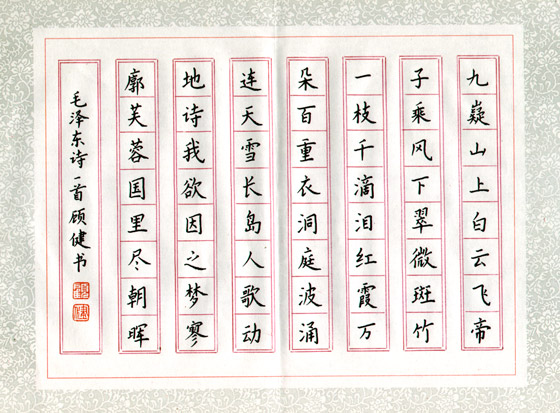 九嶷山上白云飞帝
子乘风下翠微斑竹
一枝千滴泪红霞万
朵百重衣洞庭波涌
连天雪长岛人歌动
地诗我欲因之梦寥
廓芙蓉国里尽朝晖
毛泽东诗一首顾健书